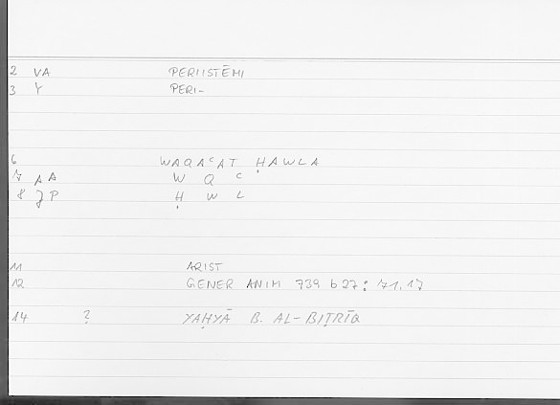 2 VA PERIISTĒMI
3 Y PERI-
6 WAQAʿAT ḤAWLA
7 AA W Q ʿ
8 JP Ḥ W L
11 ARIST
12 GENER ANIM 739 b 27 : 71,17
14 ? YAḤYĀ B. AL-BIṬRĪQ